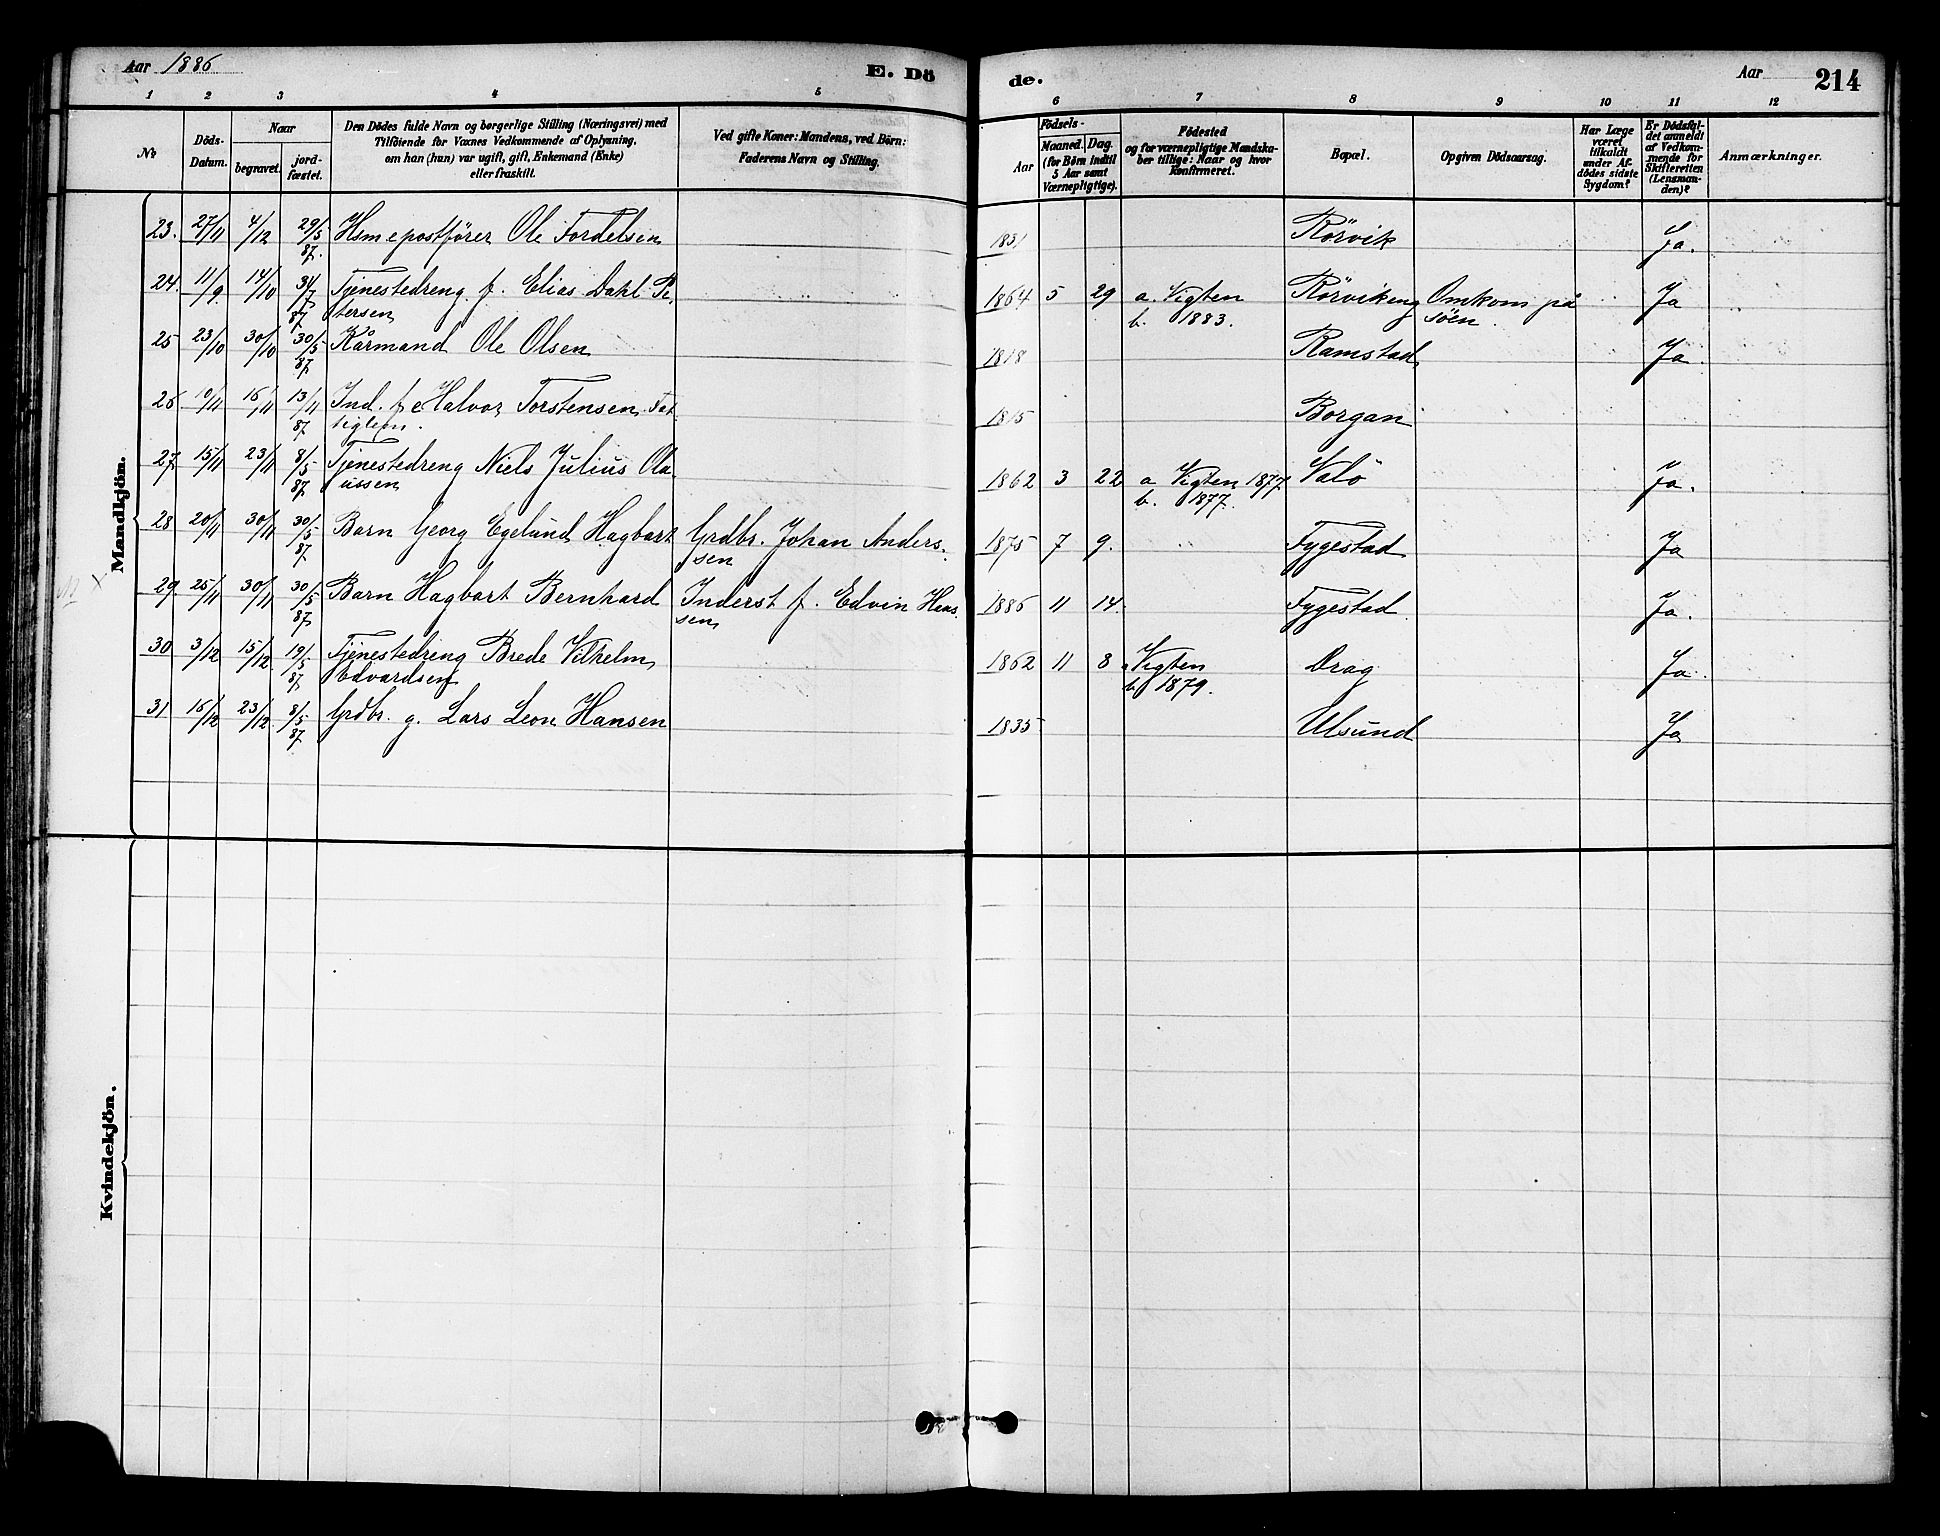 Aar 1886
E. Dö
de.
Aar
214
1 2 3 4 5
6 7 8 9 10 11 12
No
Döds-Datum.
Naar
begravet.
jord-fæstet.
Den Dödes fulde Navn og borgerlige Stilling (Næringsvei) med
Tilföiende for Voxnes Vedkommende af Oplysning,
om han (hun) var ugift, gift, Enkemand (Enke)
eller fraskilt.
Ved gifte Koner: Mandens, ved Börn:
Faderens Navn og Stilling.
Födsels-
Aar
Maaned. Dag.
(for Børn indtil
5 Aar samt
Værnepligtige).
Födested
og for værnepligtige Mandska-
ber tillige: Naar og hvor
konfirmeret.
Bopæl.
Opgiven Dödsaarsag.
Har Læge
været
tilkaldt
under Af-
dödes sidste
Sygdom?
Er Dödsfal-
det anmeldt
af Vedkom-
mende for
Skifteretten
(Lensman-
den)?
Anmærkninger.
Mandkjön.
23. 27/11 4/12 29/5 87. Hsm e postfører Ole Fordelsen 1831 Rörvik Ja.
24. 11/9 14/10 31/7 87 Tjenestedreng f. Elias Dahl Pe- 1864 5 29 a. Vigten Rørvikeng Omkom på Ja
tersen b. 1883. söen.
25 23/10 30/10 30/5 87. Kårmand Ole Olsen 1818 Ramstad Ja
26 16/11 13/11 87 Ind. f e Halvor Torstensen 1815 Borgan
27 15/11 23/11 8/5 87. Tjenestedreng Niels Julius Ola- 1862 3 22 a Vigten 1877. Valö Ja.
ussen b. 1877.
28 20/11 30/11 30/5 87. Barn Georg Egelund Hagbart Grdbr. Johan Anders- 1875 7 9. Fygestad Ja
sen
29 25/11 30/11 30/5 87. Barn Hagbart Bernhard Inderst f. Edvin Han- 1886 11 14. Fygestad Ja.
sen
30 3/12 15/12 19/5 87. Tjenestedreng Brede Vilhelm 1862 11 8 a Vigten Drag Ja.
Edvardsen b 1879.
31 16/12 23/12 8/5 87. Grdbr. g. Lars Leon Hansen 1835 Ulsund Ja
Kvindekjön.